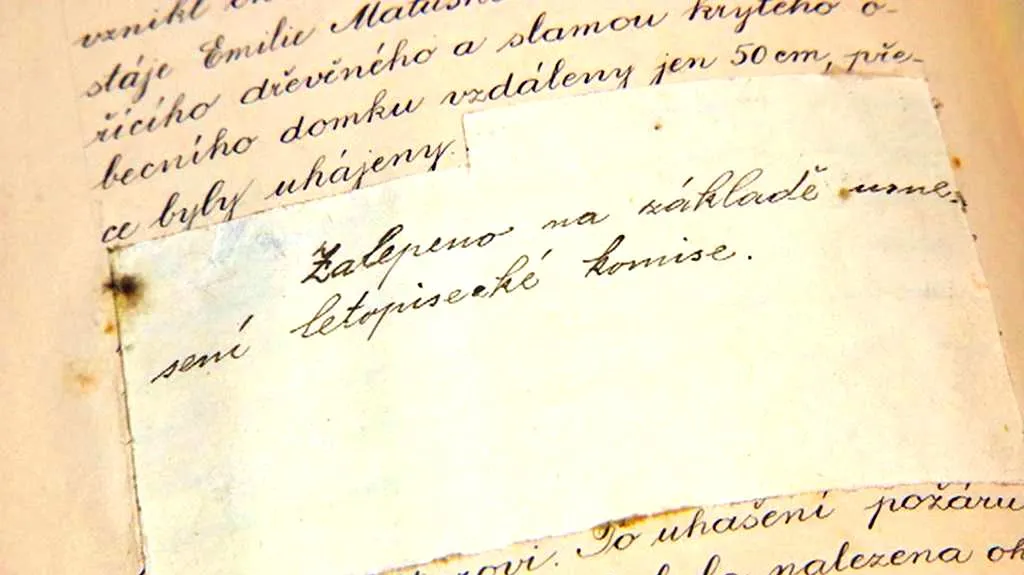 vznikl
stáje Emilie
řícího dřevěného a slamou krytého o-
becního domku vzdáleny jen 50 cm, pře-
ce byly uhájeny.
Zalepeno na základě usne-
sení letopisecké komise.
Po uhašení požáru
nalezena